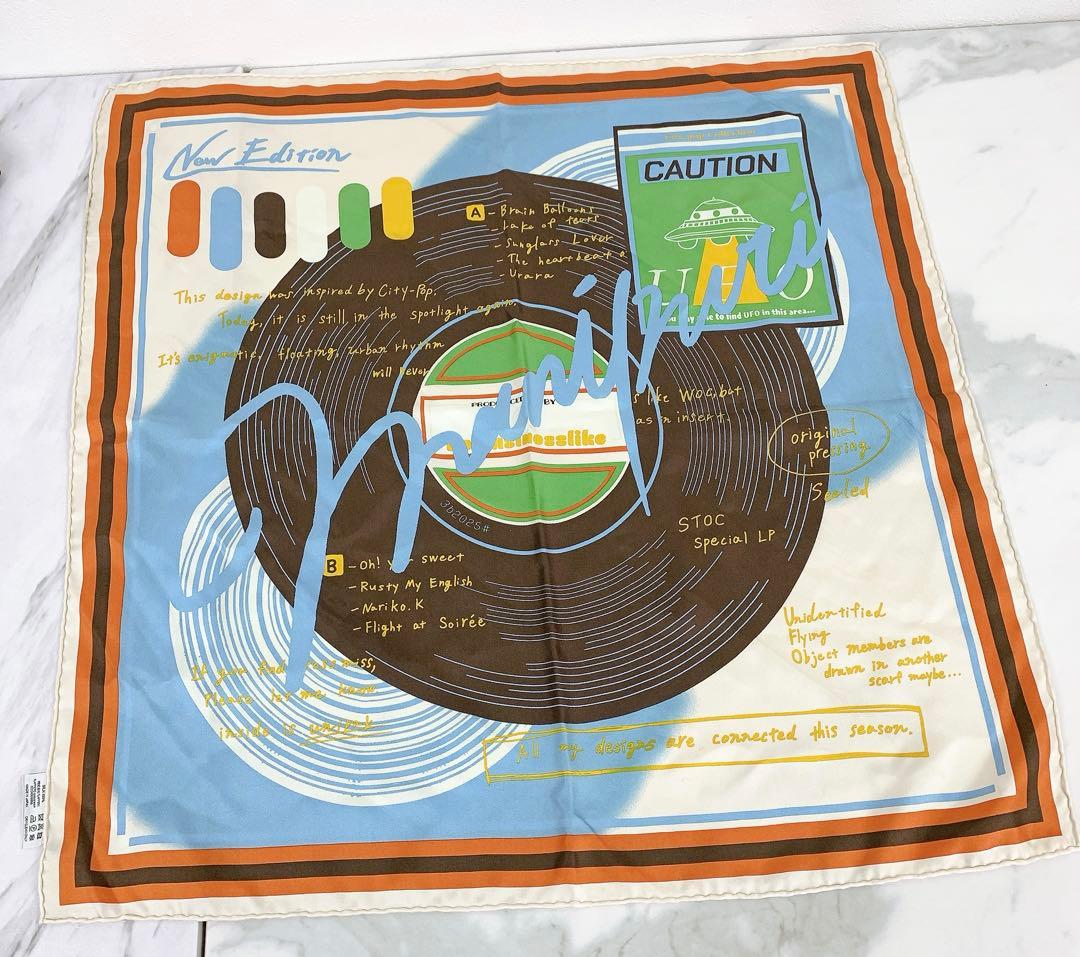 New Edition
CAUTION
UFO
to find UFO in this area...
A - Brain Balloons
- Lake of tears
- Sunglass Lover
- The heartbeat
- Urara
This design was inspired by City-Pop.
Today, it is still in the spotlight again.
It's enigmatic, floating, urban rhythm
will never
manipuri
PRODUCED BY
like WOC, but
as insert.
original
pressing
Sealed
3b2025#
STOC
Special LP
B - Oh! sweet
- Rusty My English
- Nariko.K
- Flight at Soirée
Unidentified
Flying
Object members are
drawn in another
scarf maybe...
If you find
Please let me know
inside is
All my designs are connected this season.